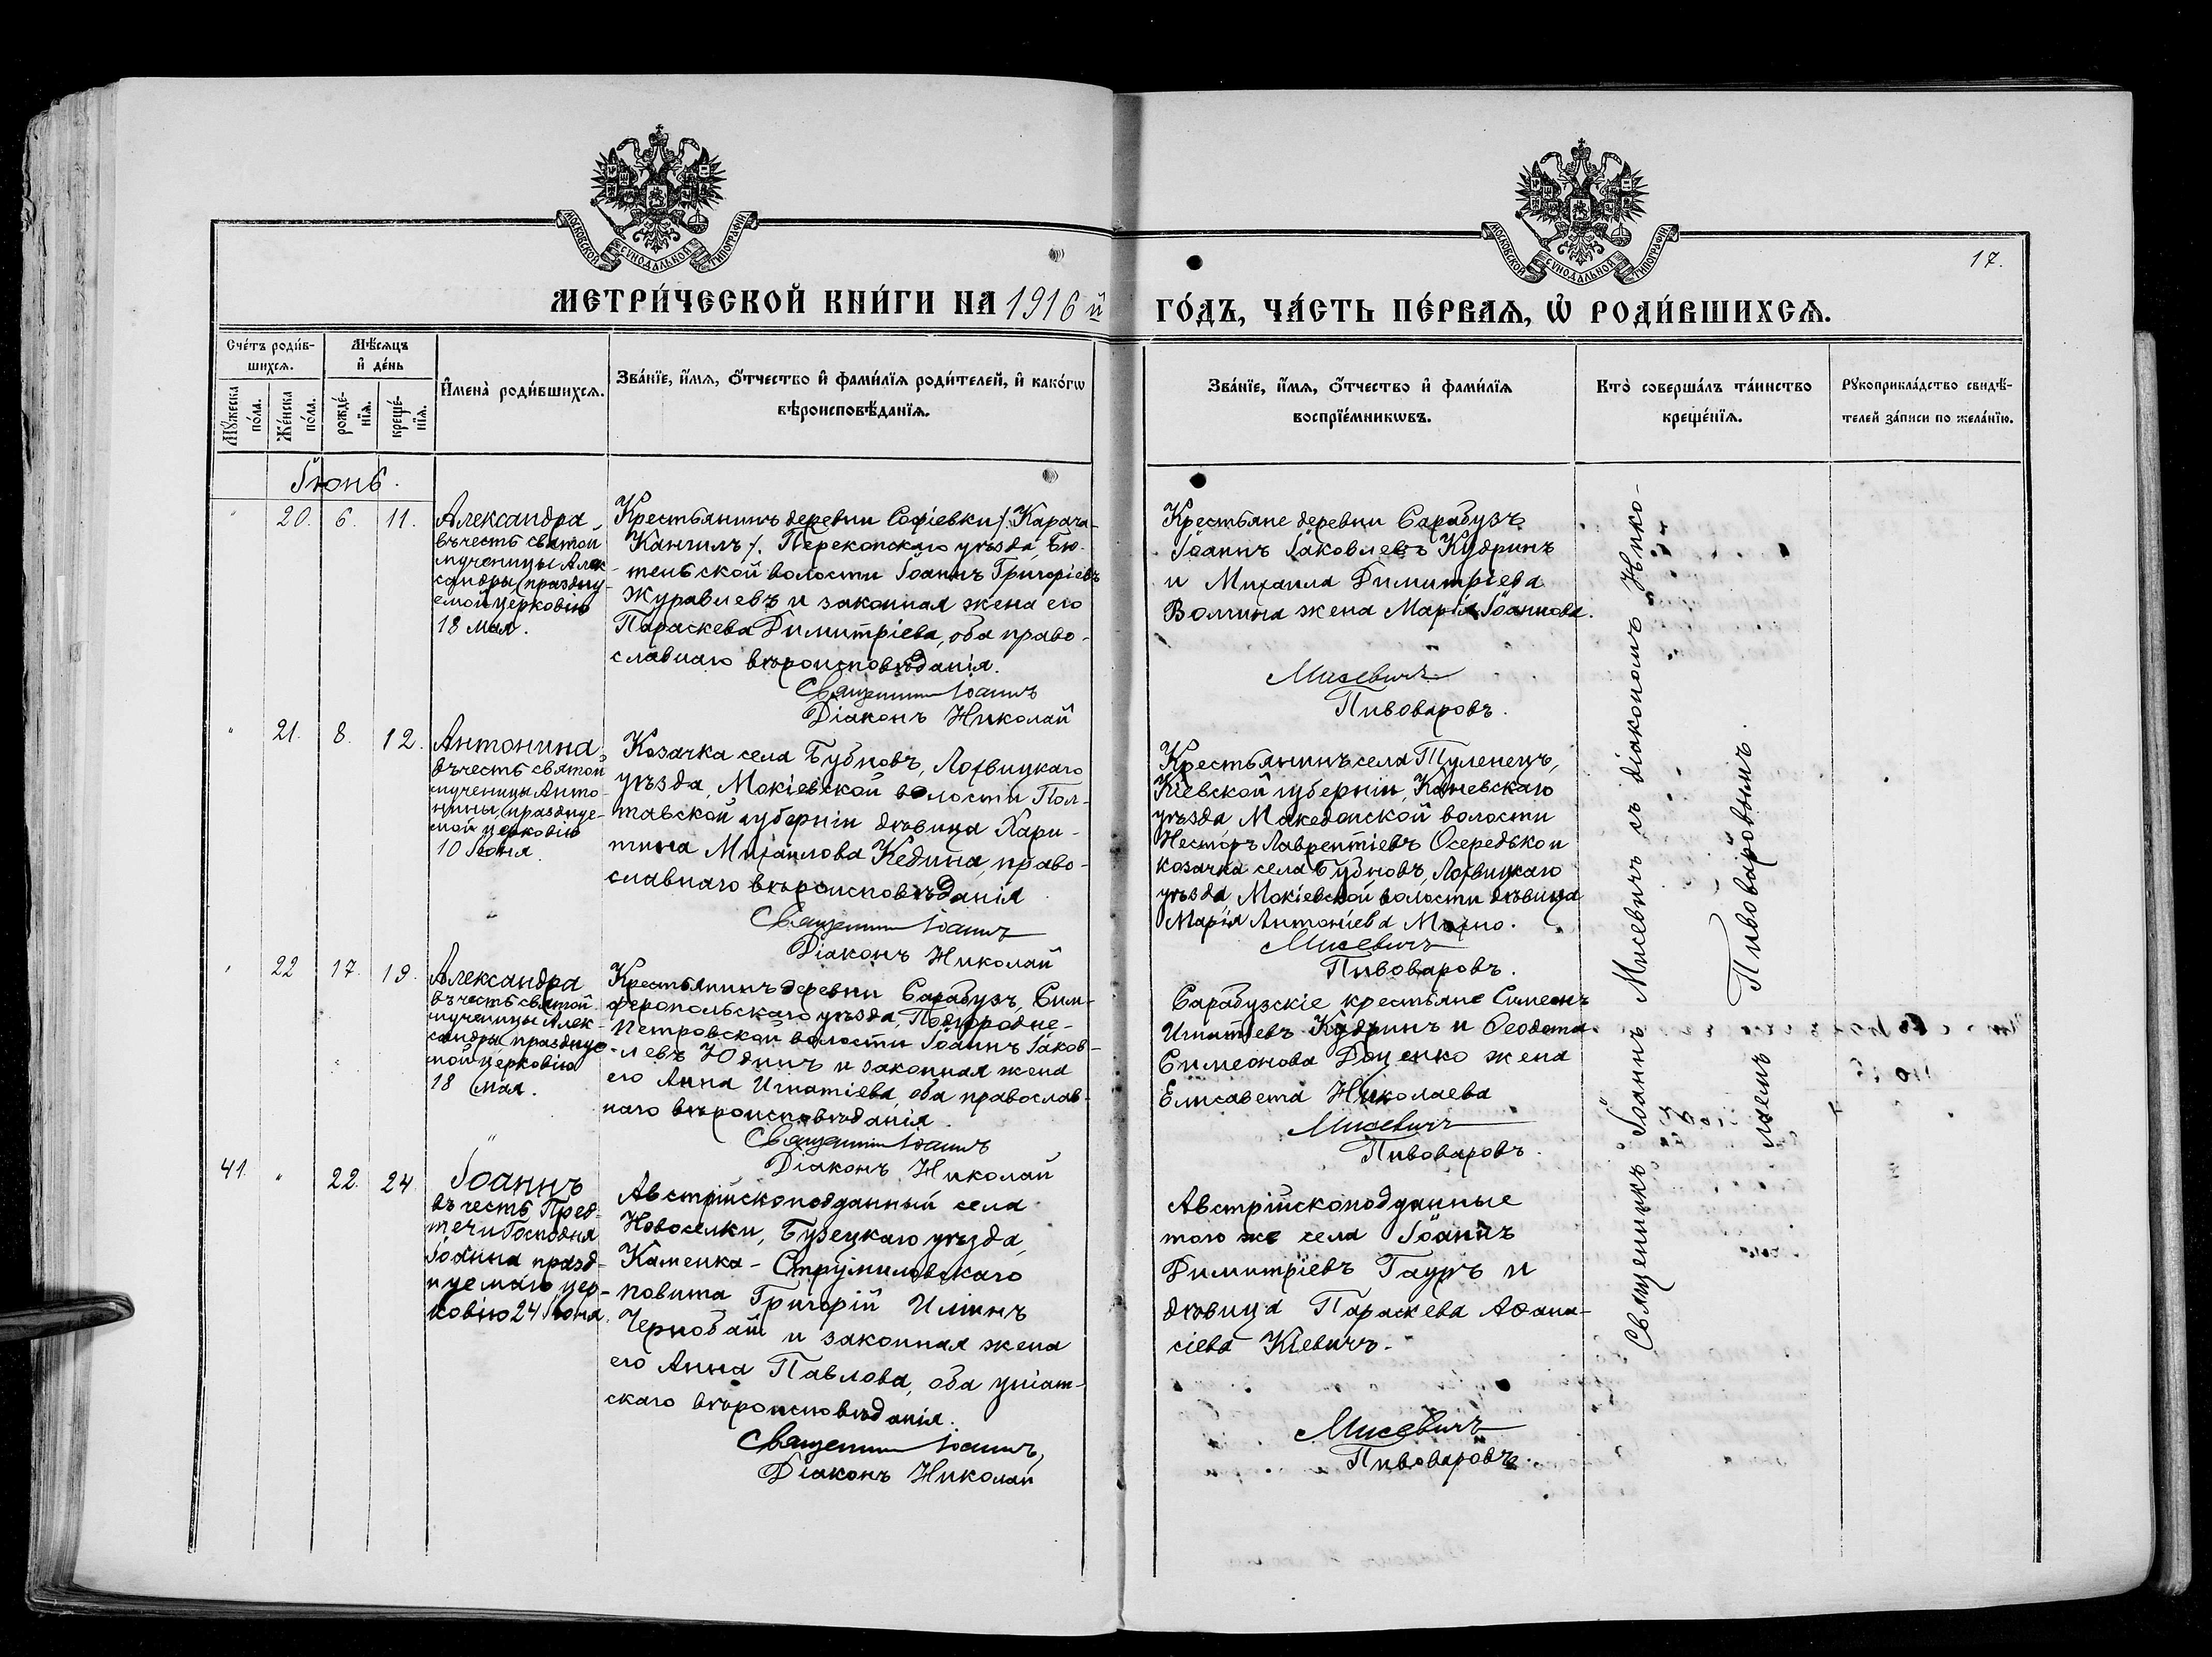 МОСКОВСКОЙ СѴНОДАЛЬНОЙ ТИПОГРАФІИ
МОСКОВСКОЙ СѴНОДАЛЬНОЙ ТИПОГРАФІИ
17.
МЕТРИ́ЧЕСКОЙ КНИ́ГИ НА 1916 й ГО́ДЪ, ЧА́СТЬ ПЕ́РВАѦ, Ѡ҆ РОДИ́ВШИХСѦ.
Сче́тъ роди́в-
шихсѧ.
Мꙋ́жеска
по́ла.
Же́нска
по́ла.
Мѣ́сѧцъ
и҆ де́нь
рожде́-
нїѧ.
креще́-
нїѧ.
И҆мена̀ роди́вшихсѧ.
Зва́нїе, и҆́мѧ, ѻ҆́тчество и҆ фами́лїѧ роди́телей, и҆ како́гѡ
вѣроисповѣ́данїѧ.
Зва́нїе, и҆́мѧ, ѻ҆́тчество и҆ фами́лїѧ
воспрїе́мникѡвъ.
Кто̀ соверша́лъ та́инство
креще́нїѧ.
Рꙋкоприкла́дство свидѣ́-
телей за́писи по жела́нїю.
Іюнь.
" 20. 6. 11.
Александра,
въ честь святой
мученицы Алек-
сандры, праздну-
емой церковію
18 мая.
Крестьянинъ деревни Софіевки /. Карача-
Кангилъ /. Перекопскаго уѣзда, Бю-
теньской волости Іоаннъ Григоріевъ
Журавлевъ и законная жена его
Параскева Димитріева, оба право-
славнаго вѣроисповѣданія.
Священникъ Іоаннъ
Діаконъ Николай
Крестьяне деревни Сарабузъ
Іоаннъ Іаковлевъ Кудринъ
и Михаила Димитріева
Волгина жена Марія Іоаннова.
Мисевичъ
Пивоваровъ.
" 21. 8. 12.
Антонина,
въ честь святой
мученицы Анто-
нины, празднуе-
мой церковію
10 Іюня.
Козачка села Бубновъ, Лохвицкаго
уѣзда, Мокіевской волости Пол-
тавской губерніи дѣвица Хари-
тина Михайлова Кедина, право-
славнаго вѣроисповѣданія
Священникъ Іоаннъ
Діаконъ Николай
Крестьянинъ села Тулинецъ,
Кіевской губерніи, Каневскаго
уѣзда Македонской волости
Несторъ Лаврентіевъ Осередько и
козачка села Бубновъ, Лохвицкаго
уѣзда, Мокіевской волости дѣвица
Марія Антоніева Махно.
Мисевичъ
Пивоваровъ.
" 22 17. 19.
Александра
въ честь святой
мученицы Алек-
сандры, празднуе-
мой церковію
18 Мая.
Крестьянинъ деревни Сарабузъ, Сим-
феропольскаго уѣзда, Подгородне-
Петровской волости Іоаннъ Іаков-
левъ Юдинъ и законная жена
его Анна Игнатіева, оба православ-
наго вѣроисповѣданія.
Священникъ Іоаннъ
Діаконъ Николай
Сарабузскіе крестьяне Симеонъ
Игнатіевъ Кудринъ и Ѳеодота
Симеонова Доценко жена
Елисавета Николаева
Мисевичъ
Пивоваровъ.
41. " 22. 24
Іоаннъ
въ честь Пред-
течи Господня
Іоанна празд-
нуемаго цер-
ковію 24 Іюня.
Австрійскоподданный села
Новоселки, Бузецкаго уѣзда,
Каменка-Струмиловскаго
повита Григорій Илiинъ
Чернобай и законная жена
его Анна Павлова, оба уніат-
скаго вѣроисповѣданія.
Священникъ Іоаннъ,
Діаконъ Николай
Австрійскоподданные
того же села Іоаннъ
Димитріевъ Гауръ и
дѣвица Параскева Аѳана-
сіева Кіевичъ.
Мисевичъ
Пивоваровъ.
Священникъ Іоаннъ Мисевичъ съ діакономъ Нико-
лаемъ Пивоваровымъ.